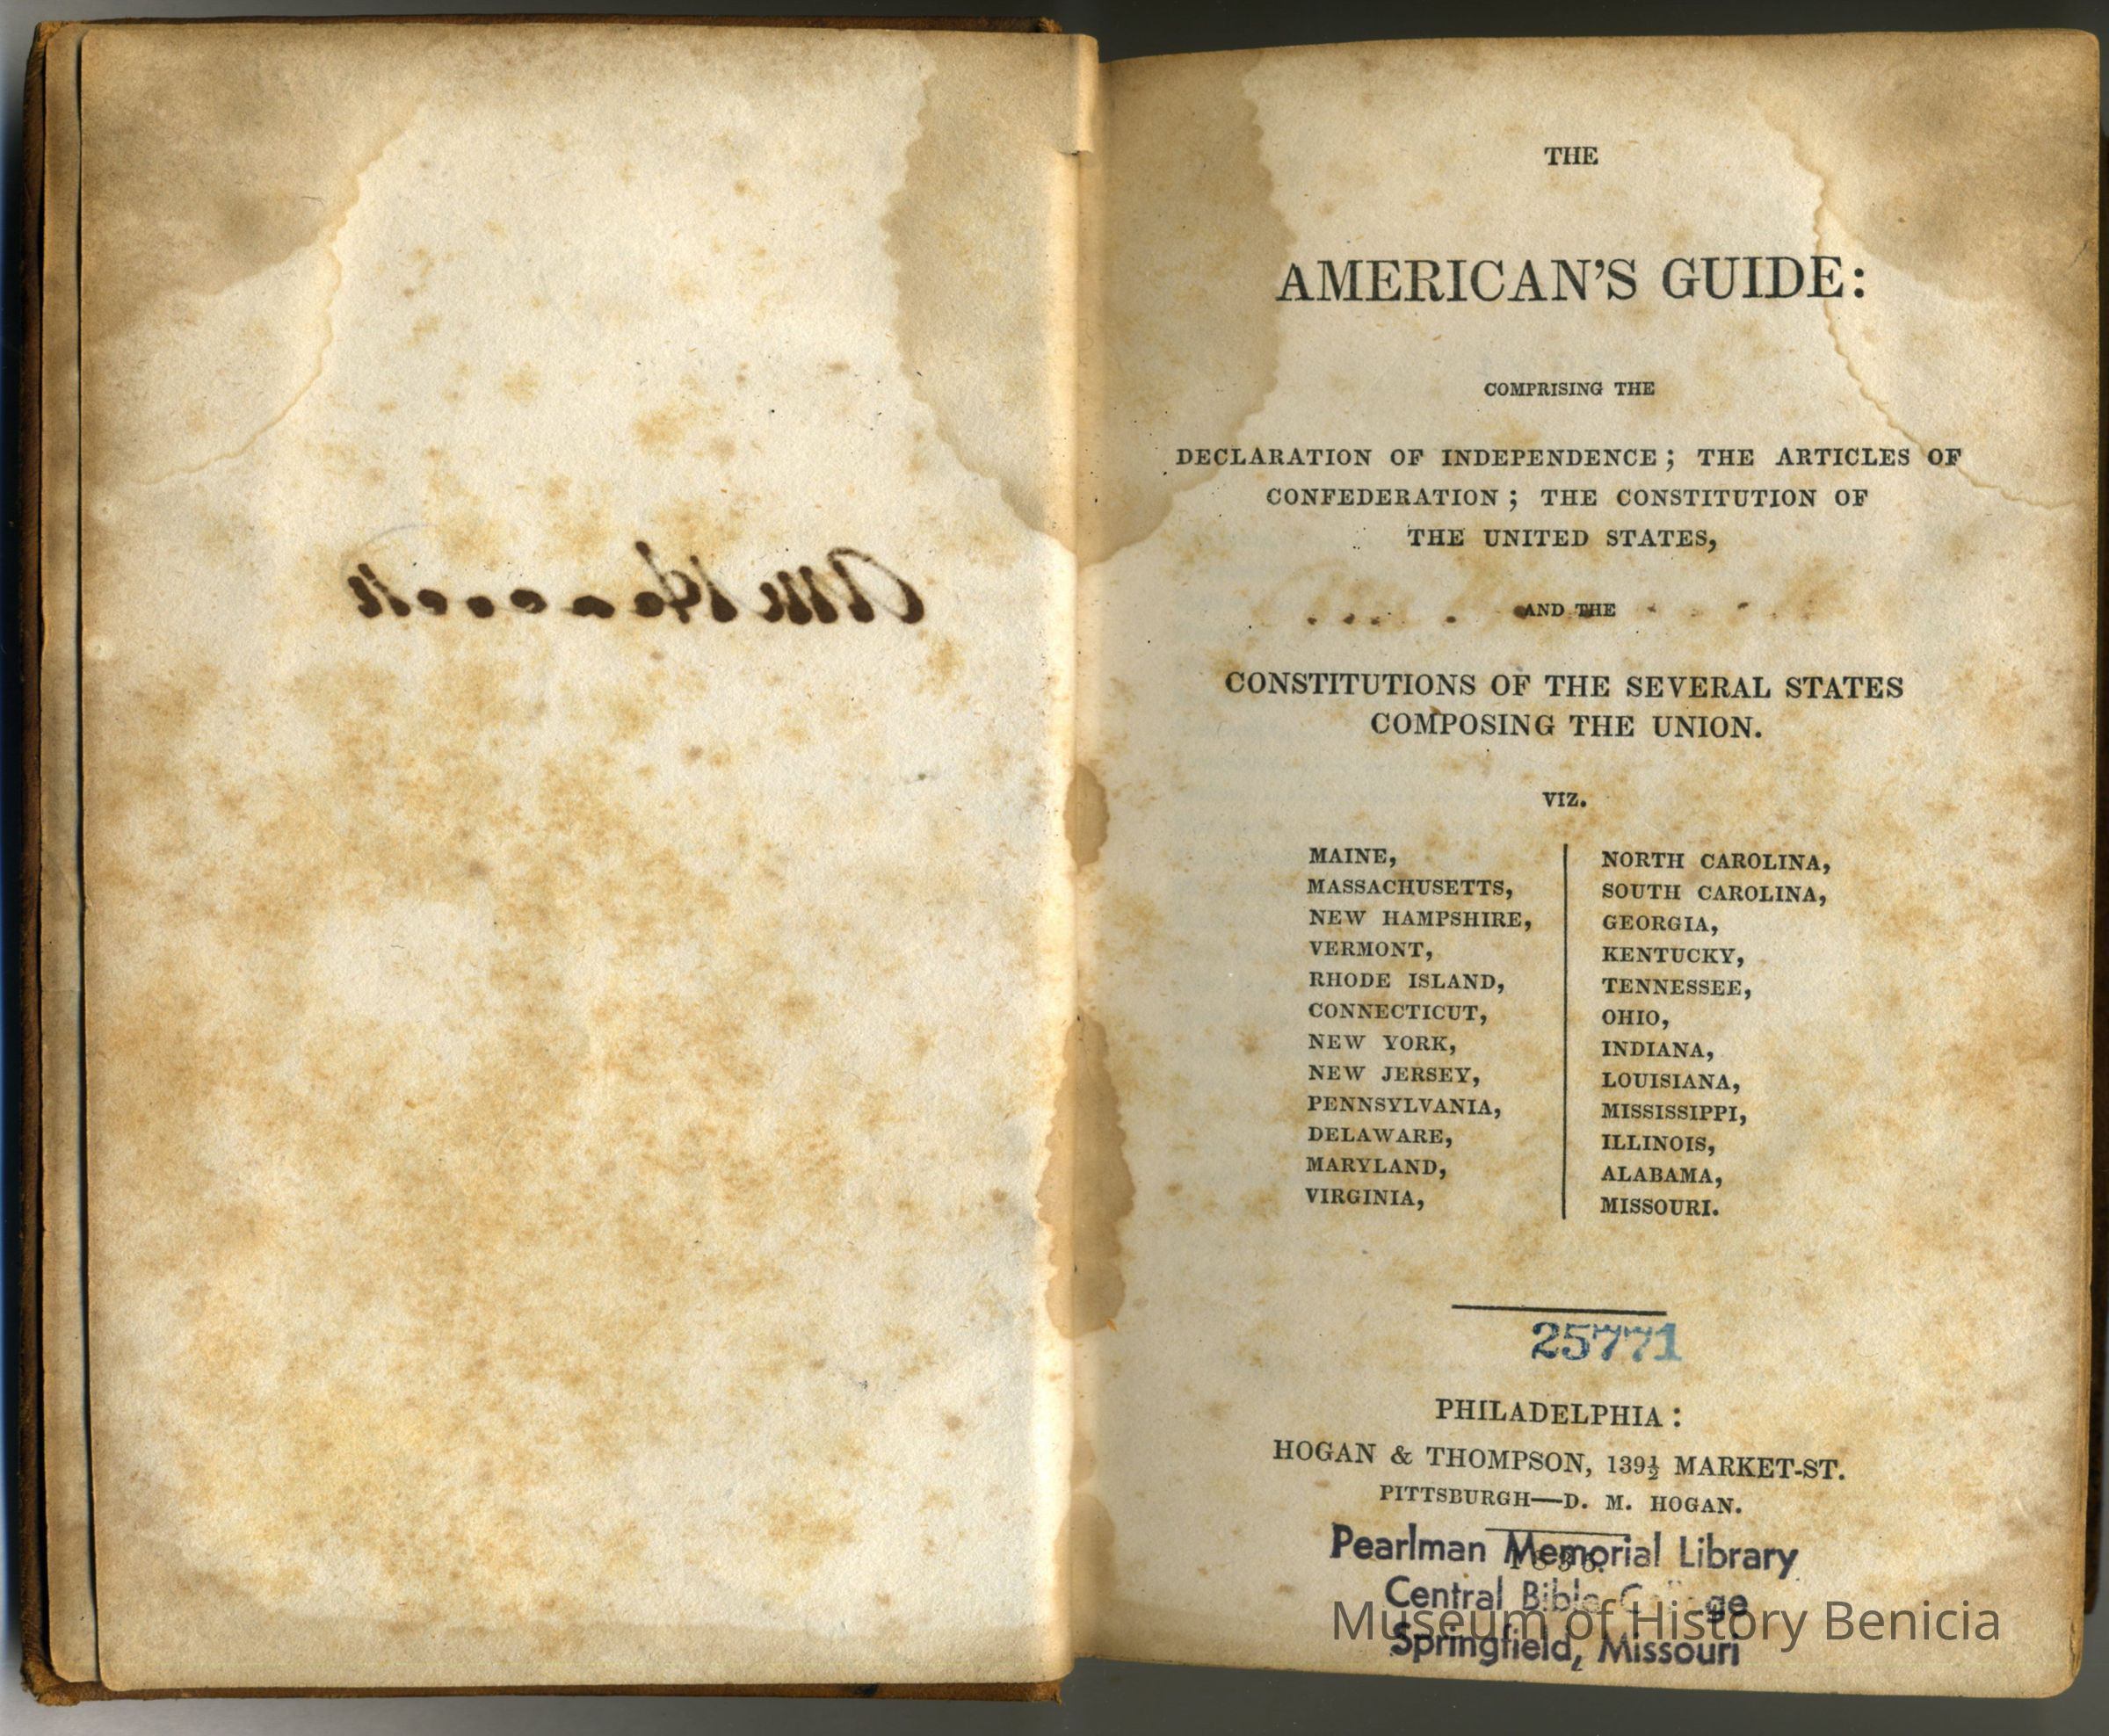 THE
AMERICAN'S GUIDE:
COMPRISING THE
DECLARATION OF INDEPENDENCE; THE ARTICLES OF
CONFEDERATION; THE CONSTITUTION OF
THE UNITED STATES,
AND THE
CONSTITUTIONS OF THE SEVERAL STATES
COMPOSING THE UNION.
VIZ.
MAINE,
MASSACHUSETTS,
NEW HAMPSHIRE,
VERMONT,
RHODE ISLAND,
CONNECTICUT,
NEW YORK,
NEW JERSEY,
PENNSYLVANIA,
DELAWARE,
MARYLAND,
VIRGINIA,
NORTH CAROLINA,
SOUTH CAROLINA,
GEORGIA,
KENTUCKY,
TENNESSEE,
OHIO,
INDIANA,
LOUISIANA,
MISSISSIPPI,
ILLINOIS,
ALABAMA,
MISSOURI.
25771
PHILADELPHIA:
HOGAN & THOMPSON, 139½ MARKET-ST.
PITTSBURGH—D. M. HOGAN.
Pearlman Memorial Library
Central Bible College
Springfield, Missouri
Museum of History Benicia